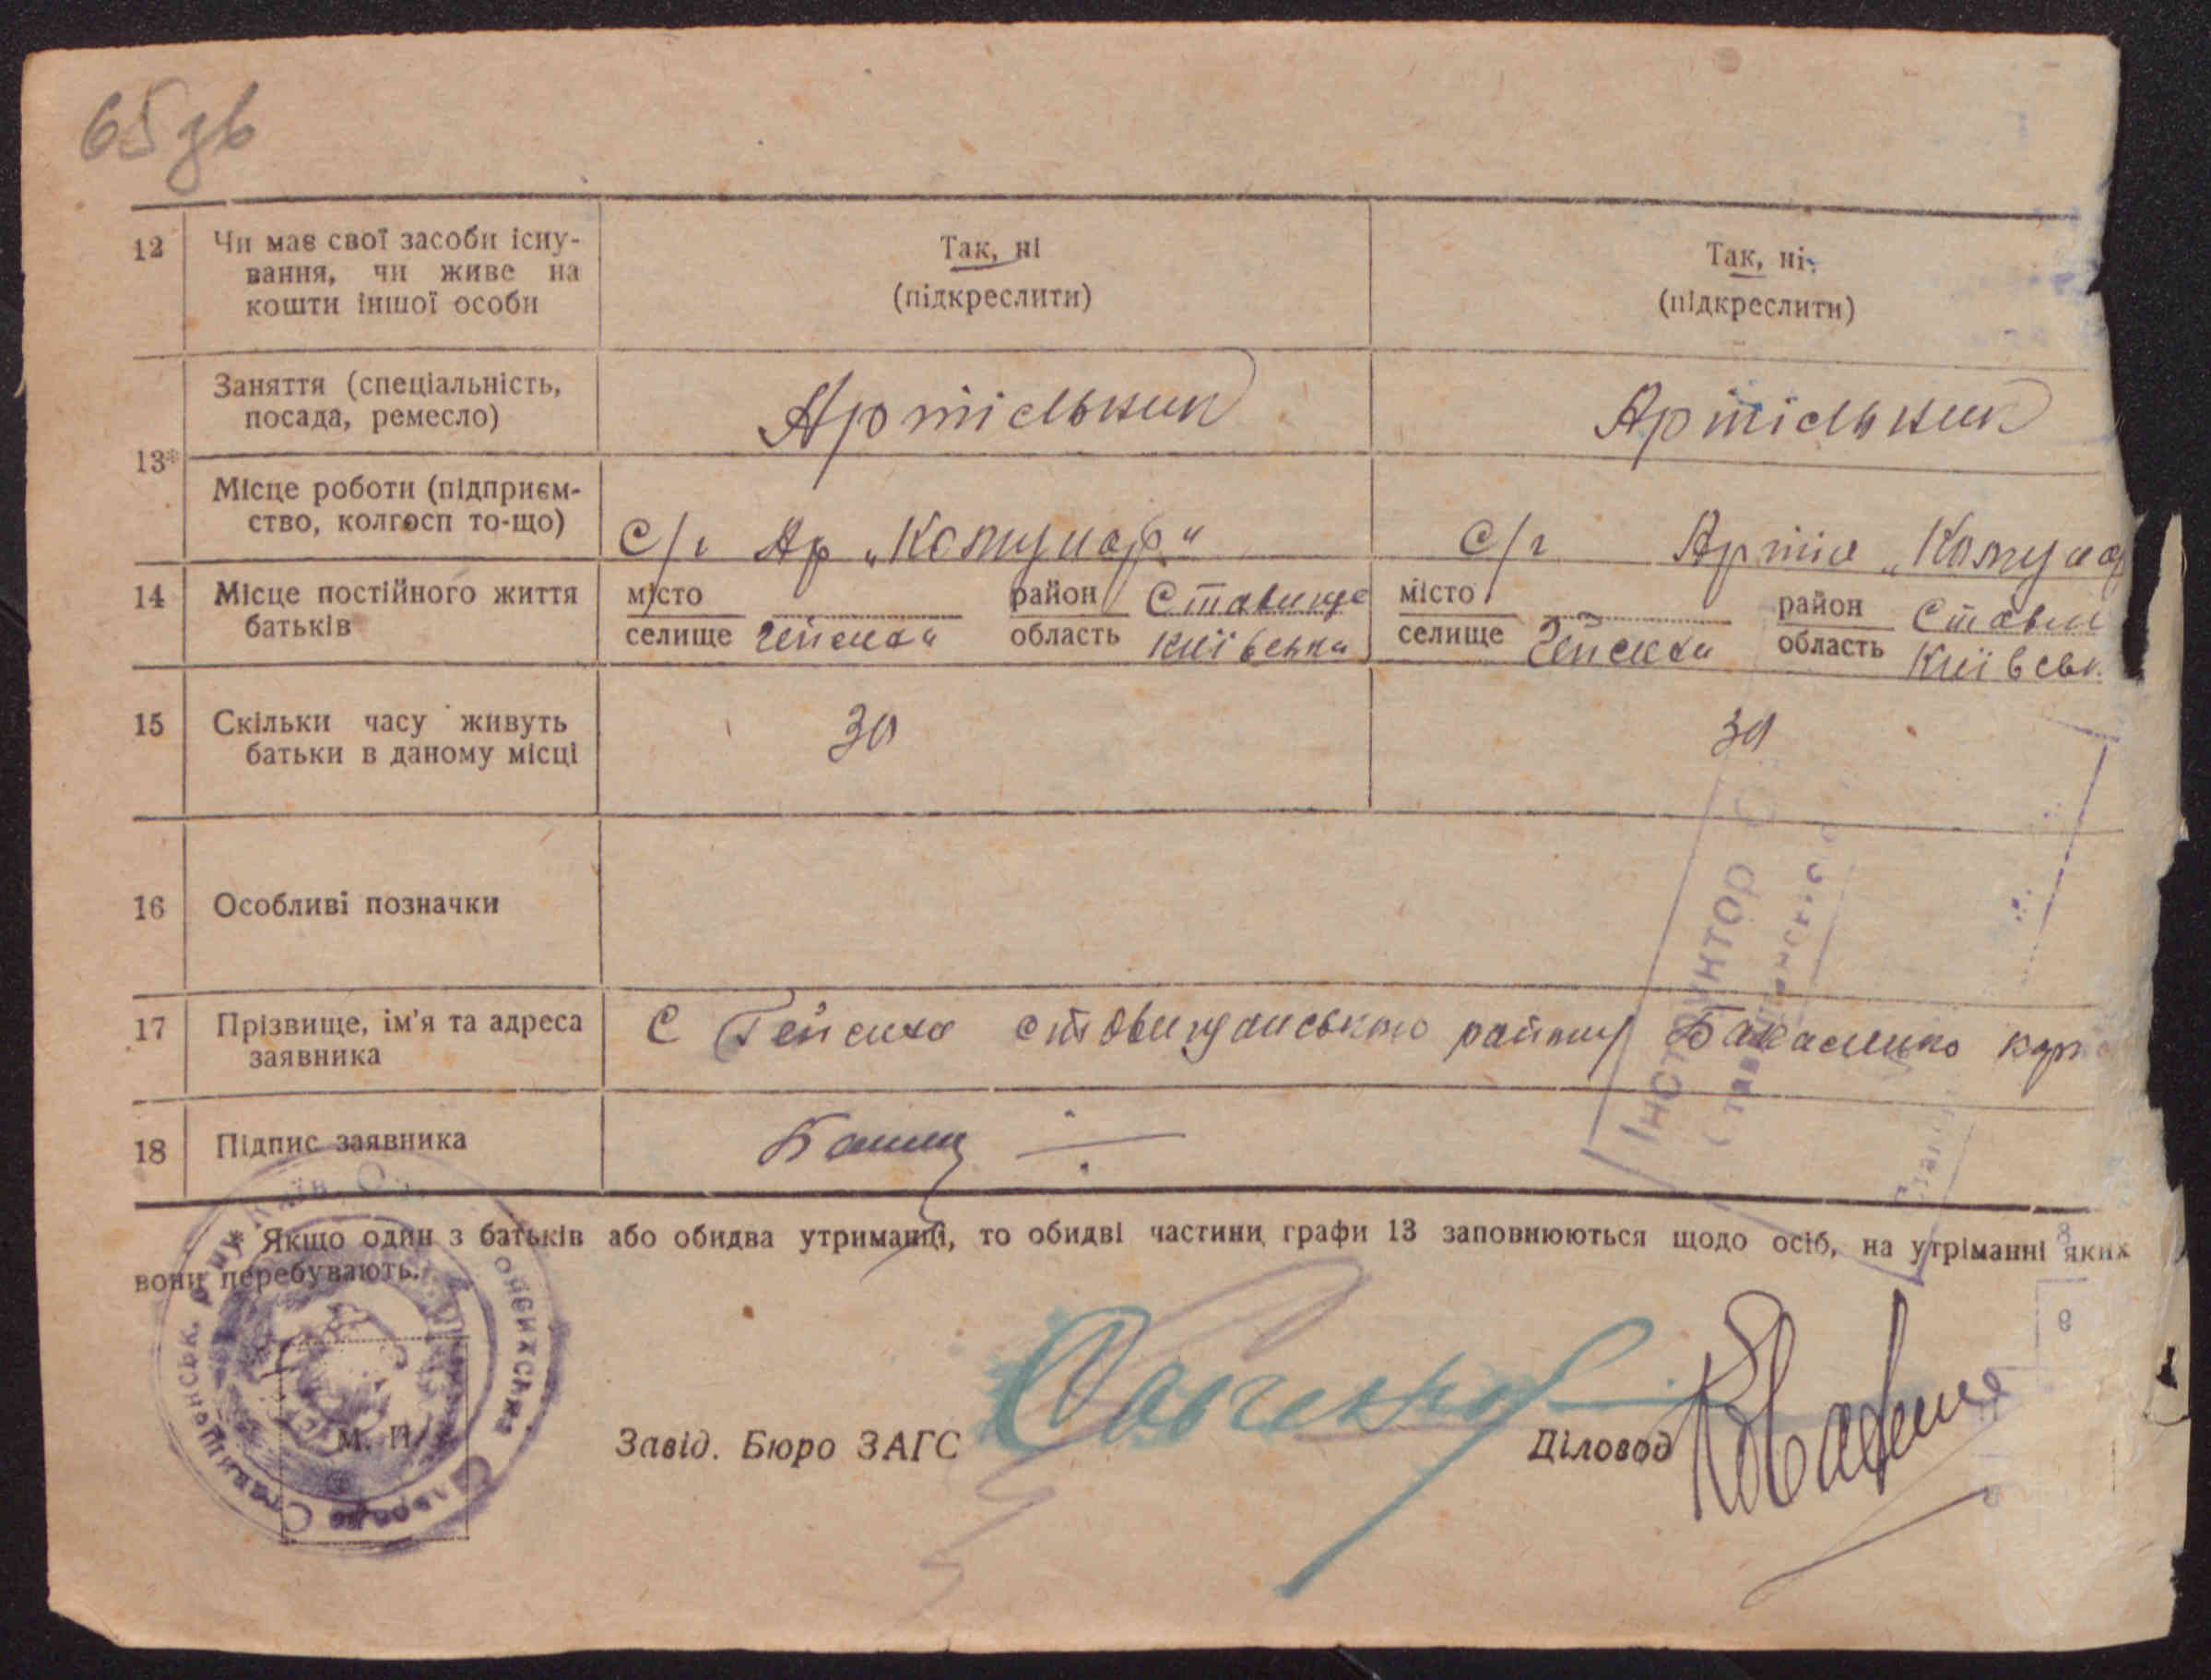 65 зв
12 Чи має свої засоби існу- Так, ні Так, ні
вання, чи живе на (підкреслити) (підкреслити)
кошти іншої особи
Заняття (спеціальність, Артільник Артільник
посада, ремесло)
13*
Місце роботи (підприєм-
ство, колгосп то-що) С/г Ар „Комунар“ С/г Артіл „Комунар
14 Місце постійного життя місто район Ставище місто район Стави
батьків селище область Київська селище область Київськ.
15 Скільки часу живуть 30 30
батьки в даному місці
16 Особливі позначки
17 Прізвище, ім'я та адреса С Гейсиха Ставищанського району
заявника
18 Підпис заявника
* Якщо один з батьків або обидва утриманці, то обидві частини графи 13 заповнюються щодо осіб, на утріманні яких
вони перебувають.
М. П.
Завід. Бюро ЗАГС Діловод
Інструктор